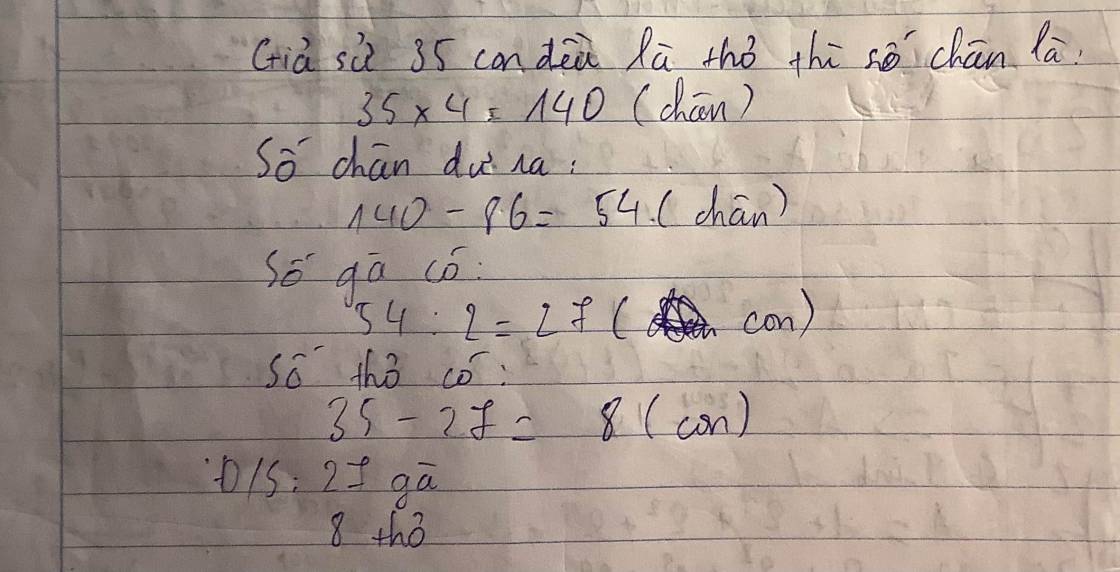 Giả sử 35 con đều là thỏ thì số chân là:
35 x 4 = 140 (chân)
Số chân dư ra:
140 - 86 = 54 (chân)
Số gà có:
54 : 2 = 27 ( con)
Số thỏ có:
35 - 27 = 8 (con)
Đ/S: 27 gà
8 thỏ